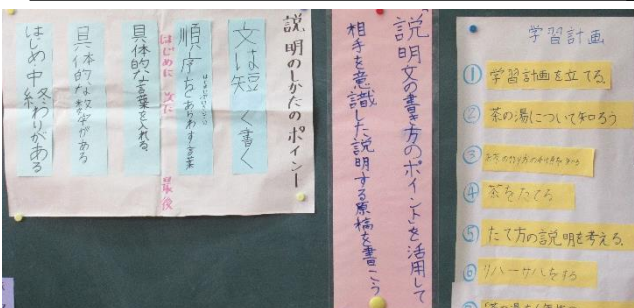 説明のしかたのポイント
文は短く書く
順序をあらわす言葉
はじめに 次に 最後
具体的な言葉を入れる
具体的な数字がある
はじめ中終わりがある
「説明文の書き方のポイント」を活用して
相手を意識した説明する原稿を書こう
学習計画
① 学習計画を立てる。
② 茶の湯について知ろう
③
④ 茶をたてる
⑤ たて方の説明を考える。
⑥ リハーサルをする